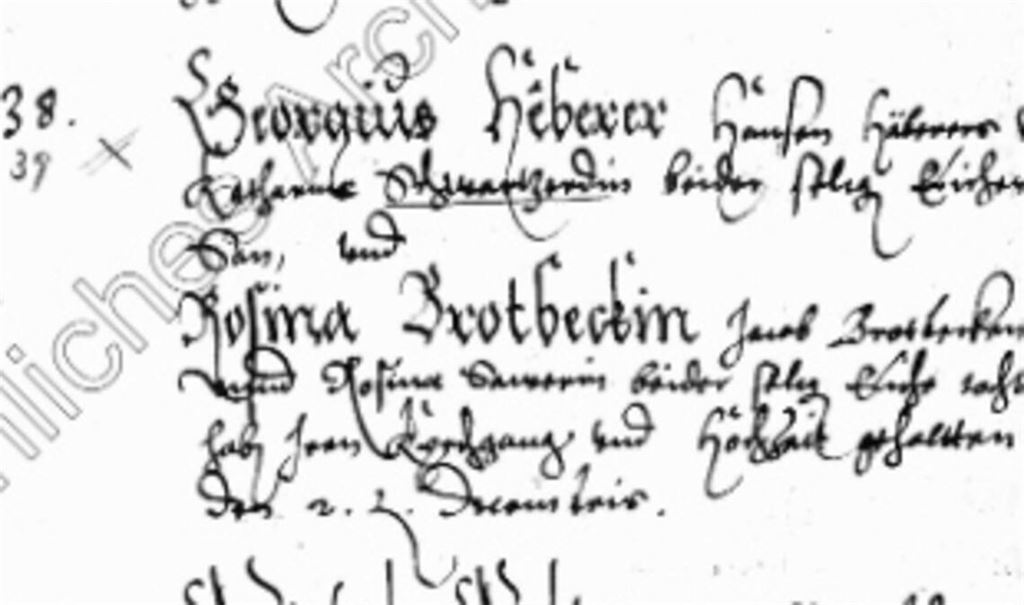 38. Georgius Heberer Hansen Häberers
39 Katharine Schwartzerdin beider selig Elicher
Son, und
Rosina Brotbeckin Jacob Brotbecken
und Rosina beider selig Eliche
hab Iren Kirchgang und Hochzeit gehaltten
den 2. Decembris.